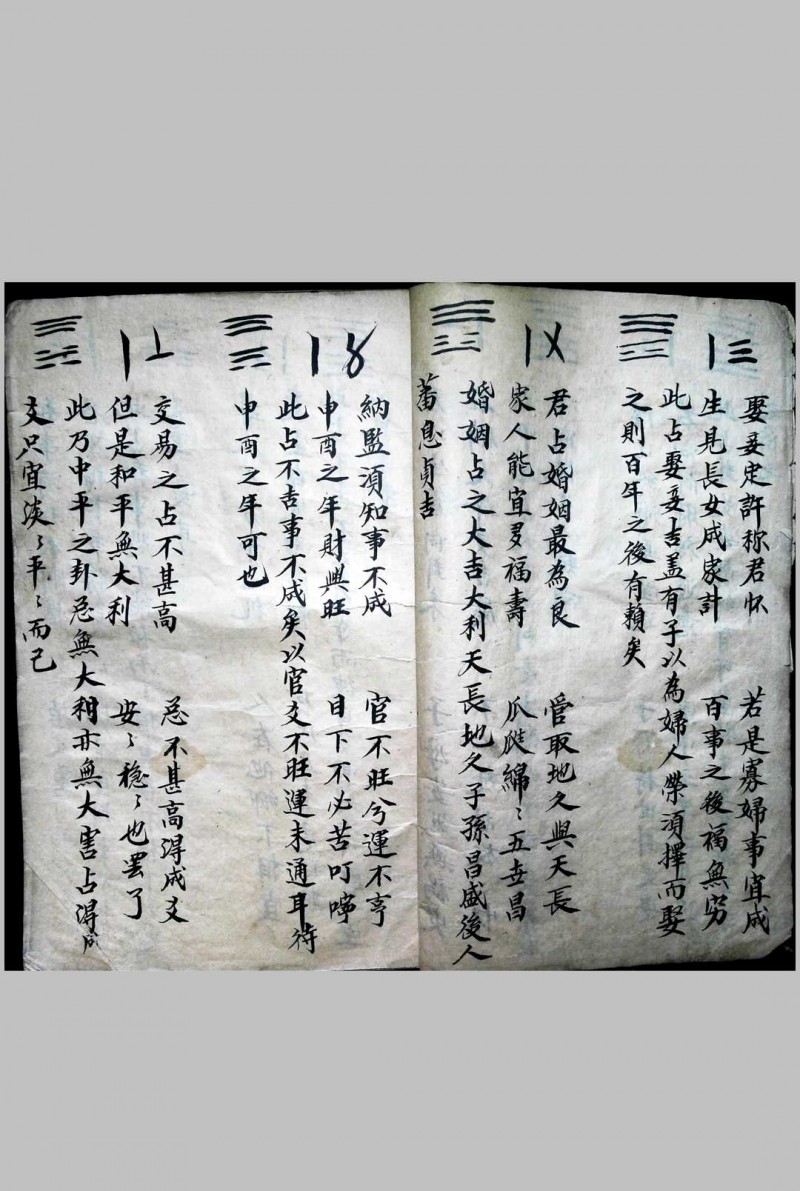 〡三
娶妾定許称君怀　若是寡婦事宜成
生見長女成家計　百事之後福無窮
此占娶妾吉盖有子以為婦人榮須擇而娶
之則百年之後有賴矣
〡〤
君占婚姻最為良　管取地久與天長
家人能宜多福壽　瓜瓞綿〻五世昌
婚姻占之大吉大利天長地久子孫昌盛後人
蕃息貞吉
納監須知事不成　官不旺兮運不亨
申酉之年財興旺　目下不必苦叮嚀
此占不吉事不成矣以官爻不旺運未通耳待
申酉之年可也
〡〦
交易之占不甚高　忌不甚高得成交
但是和平無大利　安〻穩〻也罷了
此乃中平之卦忌無大利亦無大害占得成
交只宜淡〻平〻而已